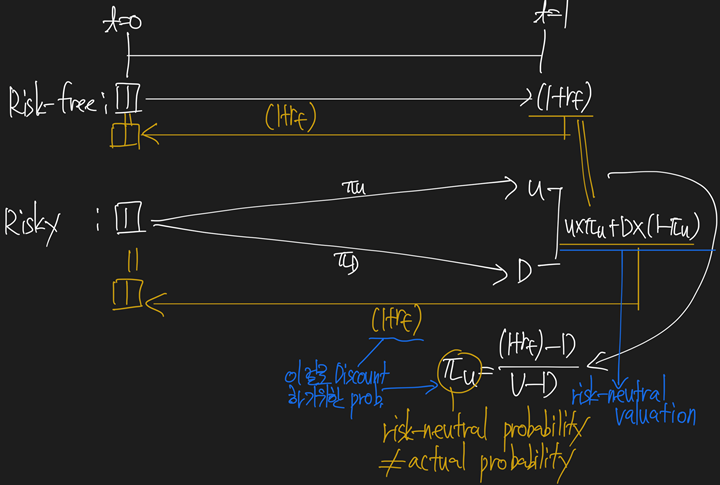 t=0
t=1
Risk-free : 1
(1+rf)
1
(1+rf)
Risky : 1
πu
U
πD
D
U×πu+D×(1-πu)
1
(1+rf)
πu = (1+rf)-D
U-D
Discount
prob.
risk-neutral
valuation
risk-neutral probability
≠ actual probability